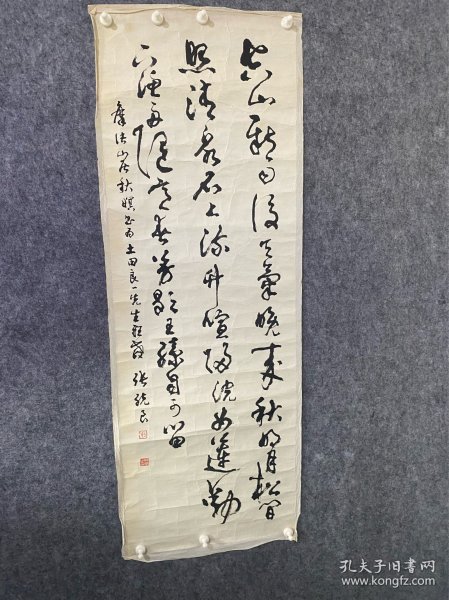 空山新雨後天氣晚來秋明月松間
照清泉石上流竹喧歸浣女蓮動
下漁舟隨意春芳歇王孫自可留
摩詰山居秋暝書為土田良一先生雅 張 良
孔夫子旧书网
www.kongfz.com